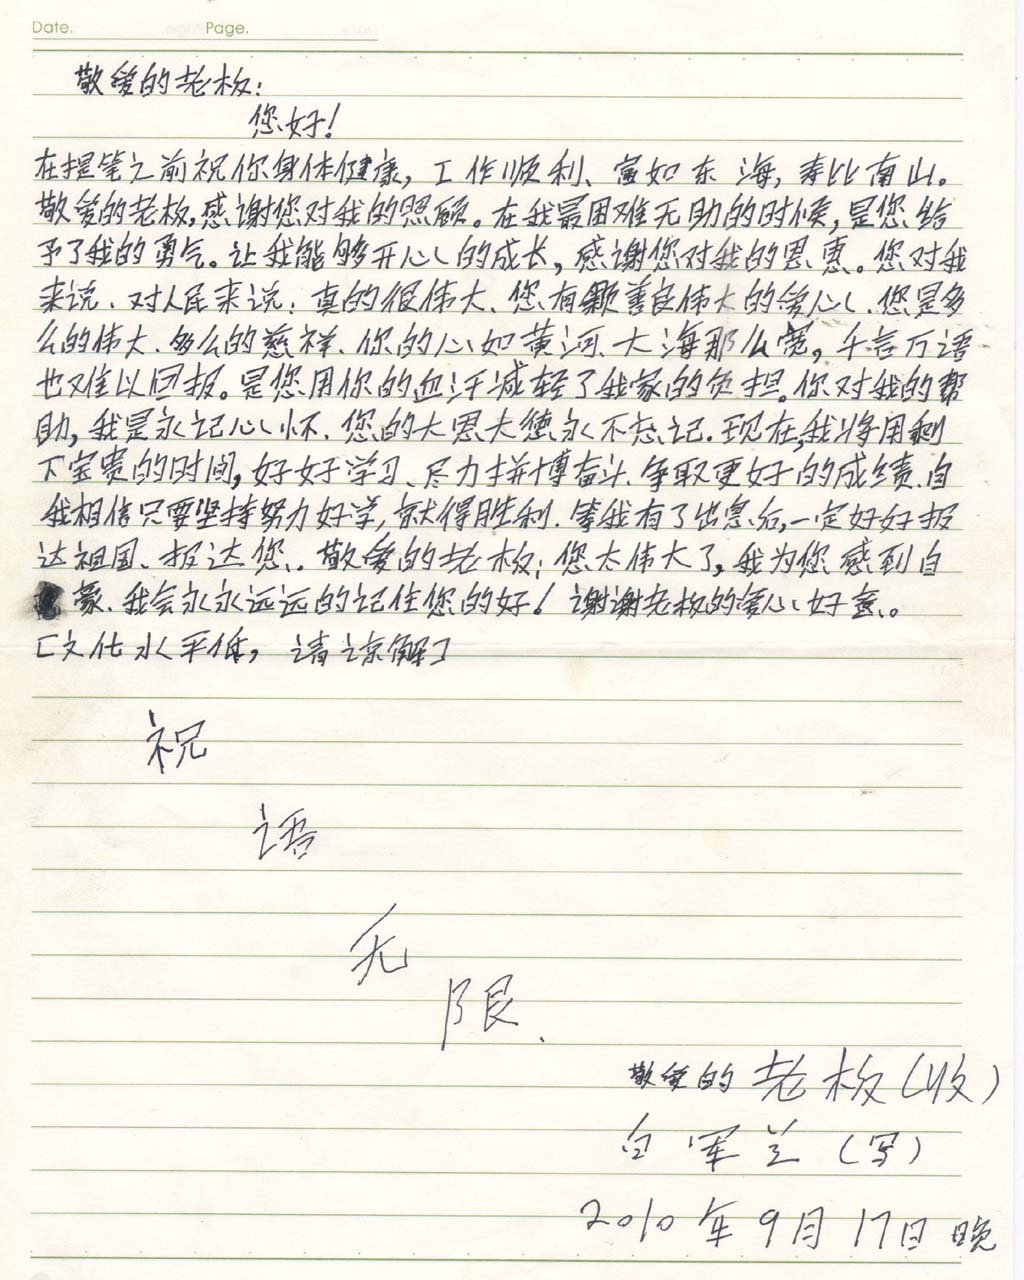 Date. Page.
敬爱的老板:
您好!
在提笔之前祝你身体健康,工作顺利、富如东海,寿比南山。
敬爱的老板,感谢您对我的照顾。在我最困难无助的时候,是您给
予了我的勇气。让我能够开心的成长,感谢您对我的恩惠。您对我
来说、对人民来说:真的很伟大、您有颗善良伟大的爱心、您是多
么的伟大、多么的慈祥、你的心如黄河、大海那么宽,千言万语
也难以回报。是您用你的血汗减轻了我家的负担。你对我的帮
助,我是永记心怀、您的大恩大德永不忘记.现在,我将用剩
下宝贵的时间,好好学习、尽力拼博奋斗、争取更好的成绩、自
我相信只要坚持努力好学,就得胜利、等我有了出息后,一定好好报
达祖国、报达您.敬爱的老板:您太伟大了,我为您感到自
豪、我会永永远远的记住您的好!谢谢老板的爱心好意。
[文化水平低,请谅解]
祝
语
无
限.
敬爱的老板(收)
白军兰(写)
2010年9月17日晚